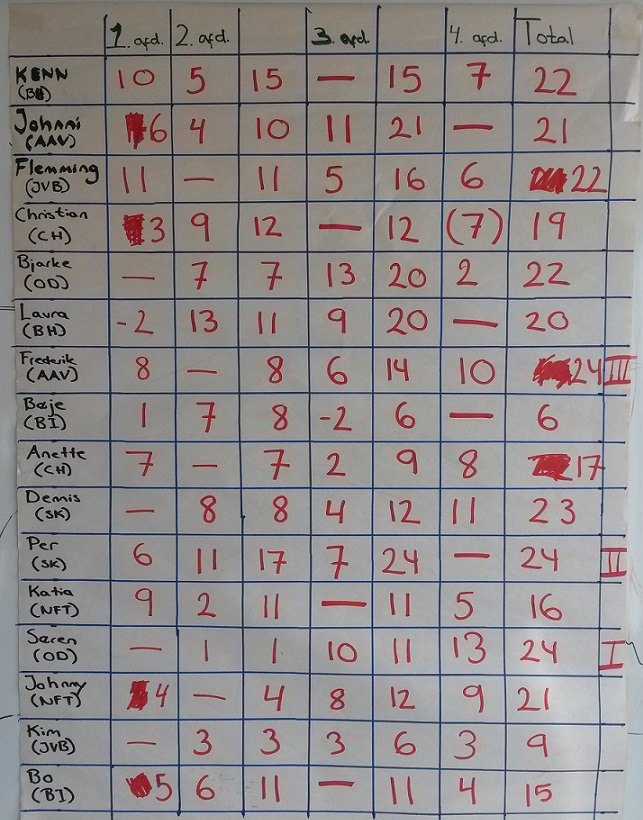 1. afd. 2. afd. 3. afd. 4. afd. Total
KENN 10 5 15 — 15 7 22
Johnni 6 4 10 11 21 — 21
(AAV)
Flemming 11 — 11 5 16 6 22
(JVB)
Christian 3 9 12 — 12 (7) 19
(CH)
Bjarke — 7 7 13 20 2 22
(OD)
Laura -2 13 11 9 20 — 20
(BH)
Frederik 8 — 8 6 14 10 24 III
(AAV)
Bøje 1 7 8 -2 6 — 6
(BI)
Anette 7 — 7 2 9 8 17
(CH)
Dennis — 8 8 4 12 11 23
(SK)
Per 6 11 17 7 24 — 24 II
(SK)
Katia 9 2 11 — 11 5 16
(NFT)
Søren — 1 1 10 11 13 24 I
(OD)
Johnny 4 — 4 8 12 9 21
(NFT)
Kim — 3 3 3 6 3 9
(JVB)
Bo 5 6 11 — 11 4 15
(BI)